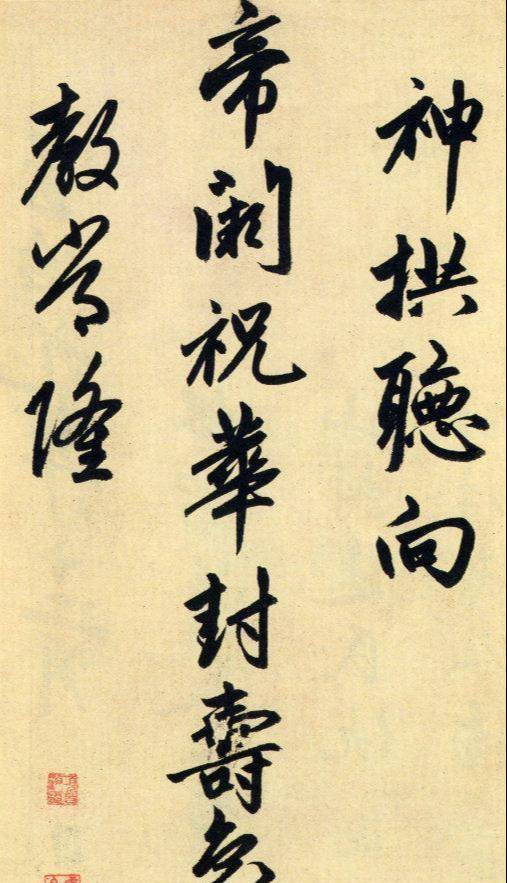 神拱聽向
帝闕祝華封壽
隆